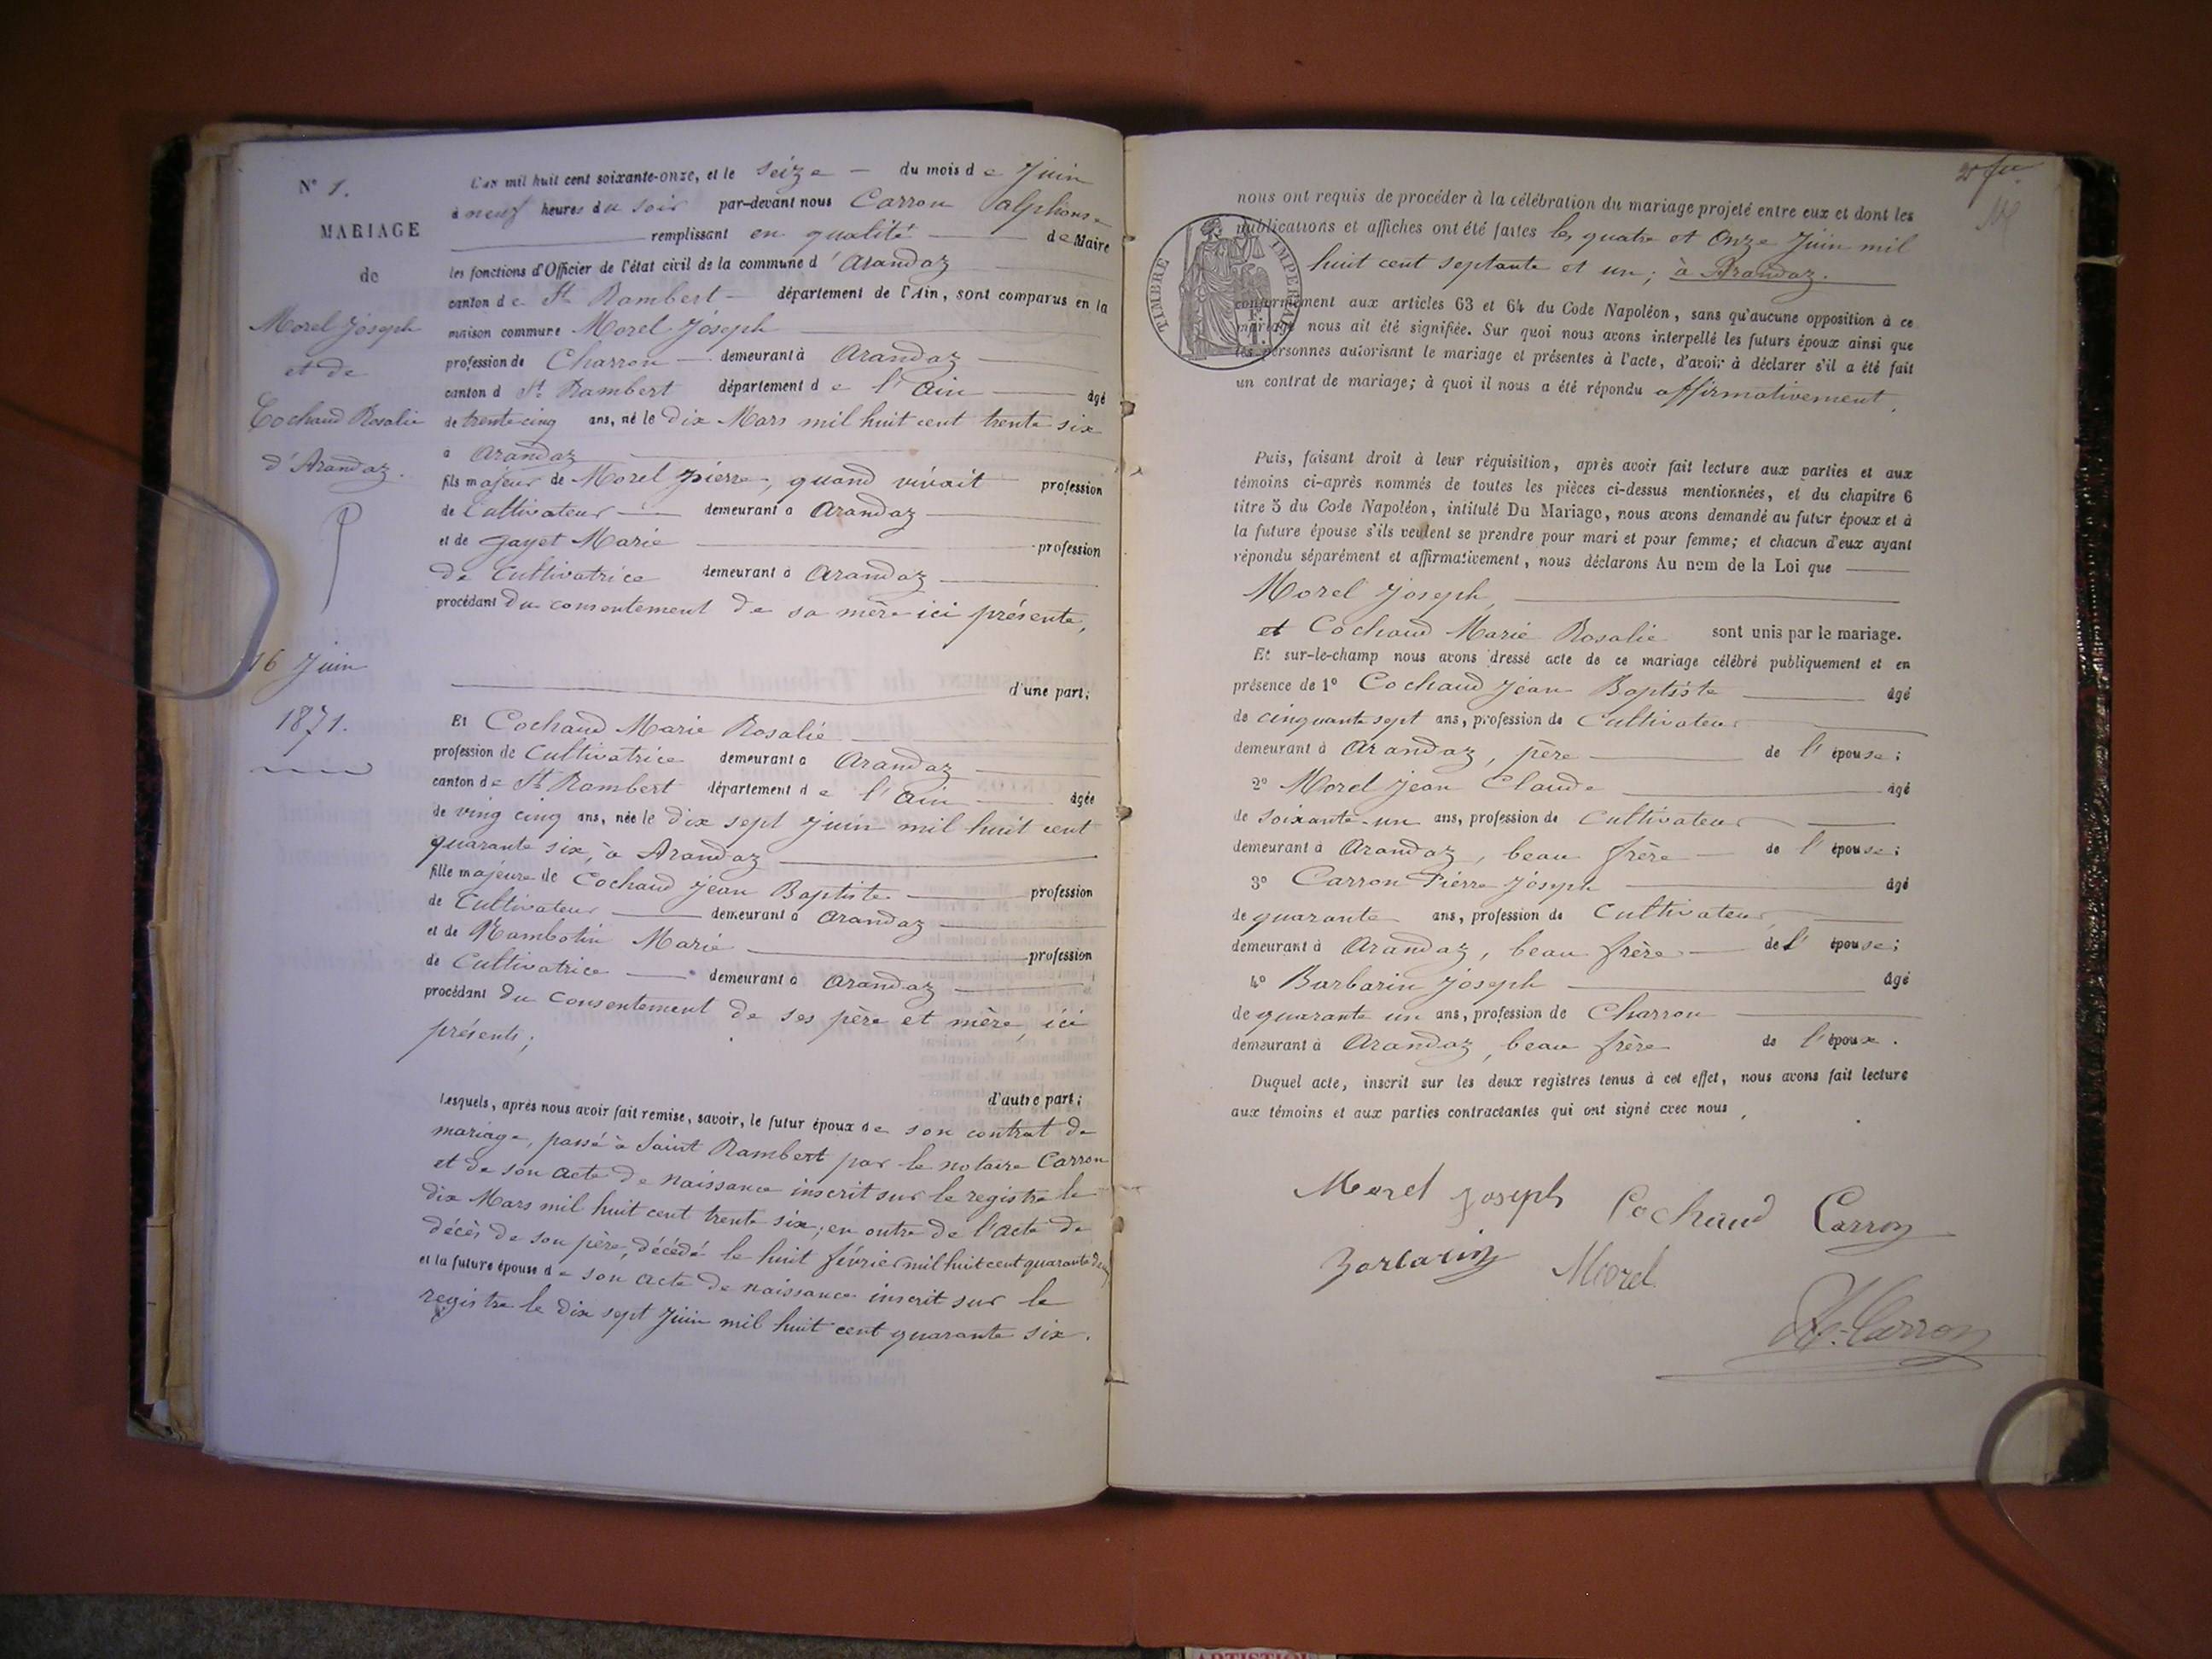 N° 1.
MARIAGE
de
Morel Joseph
et de
Cochaud Rosalie
d'Arandaz.
16 Juin
1871.
L'an mil huit cent soixante-onze, et le seize du mois de Juin
à neuf heures du soir par-devant nous Carron Alphonse
remplissant en qualité de Maire
les fonctions d'Officier de l'état civil de la commune d'Arandaz
canton de St Rambert département de l'Ain, sont comparus en la
maison commune Morel Joseph
profession de Charron demeurant à Arandaz
canton d St Rambert département de l'Ain âgé
de trente cinq ans, né le dix Mars mil huit cent trente six
à Arandaz
fils majeur de Morel Pierre, quand vivait profession
de Cultivateur demeurant à Arandaz
et de Gayet Marie profession
de Cultivatrice demeurant à Arandaz
procédant du consentement de sa mère ici présente,
d'une part;
Et Cochaud Marie Rosalie
profession de Cultivatrice demeurant à Arandaz
canton de St Rambert département de l'Ain âgée
de ving cinq ans, née le dix sept Juin mil huit cent
quarante six, à Arandaz
fille majeure de Cochaud Jean Baptiste profession
de Cultivateur demeurant à Arandaz
et de Rambotin Marie profession
de Cultivatrice demeurant à Arandaz
procédant du Consentement de ses père et mère, ici
présents;
d'autre part;
Lesquels, après nous avoir fait remise, savoir, le futur époux de son contrat de
mariage, passé à Saint Rambert par le notaire Carron
et de son acte de naissance inscrit sur le registre le
dix Mars mil huit cent trente six; en outre de l'acte de
décès de son père, décédé le huit février mil huit cent quarante deux
et la future épouse de son acte de naissance inscrit sur le
registre le dix sept Juin mil huit cent quarante six.
nous ont requis de procéder à la célébration du mariage projeté entre eux et dont les
publications et affiches ont été faites les quatre et Onze Juin mil
huit cent septante et un; à Arandaz.
TIMBRE IMPERIAL
conformément aux articles 63 et 64 du Code Napoléon, sans qu'aucune opposition à ce
mariage nous ait été signifiée. Sur quoi nous avons interpellé les futurs époux ainsi que
les personnes autorisant le mariage et présentes à l'acte, d'avoir à déclarer s'il a été fait
un contrat de mariage; à quoi il nous a été répondu affirmativement.
Puis, faisant droit à leur réquisition, après avoir fait lecture aux parties et aux
témoins ci-après nommés de toutes les pièces ci-dessus mentionnées, et du chapitre 6
titre 5 du Code Napoléon, intitulé Du Mariage, nous avons demandé au futur époux et à
la future épouse s'ils veulent se prendre pour mari et pour femme; et chacun d'eux ayant
répondu séparément et affirmativement, nous déclarons Au nom de la Loi que
Morel Joseph,
et Cochaud Marie Rosalie sont unis par le mariage.
Et sur-le-champ nous avons dressé acte de ce mariage célébré publiquement et en
présence de 1° Cochaud Jean Baptiste âgé
de cinquante sept ans, profession de Cultivateur
demeurant à Arandaz, père de l'épouse;
2° Morel Jean Claude âgé
de soixante-un ans, profession de Cultivateur
demeurant à Arandaz, beau frère de l'épouse;
3° Carron Pierre Joseph âgé
de quarante ans, profession de Cultivateur
demeurant à Arandaz, beau frère de l'épouse;
4° Barbarin Joseph âgé
de quarante un ans, profession de Charron
demeurant à Arandaz, beau frère de l'époux.
Duquel acte, inscrit sur les deux registres tenus à cet effet, nous avons fait lecture
aux témoins et aux parties contractantes qui ont signé avec nous,
Morel Joseph Cochaud Carron
Barbarin Morel
Carron